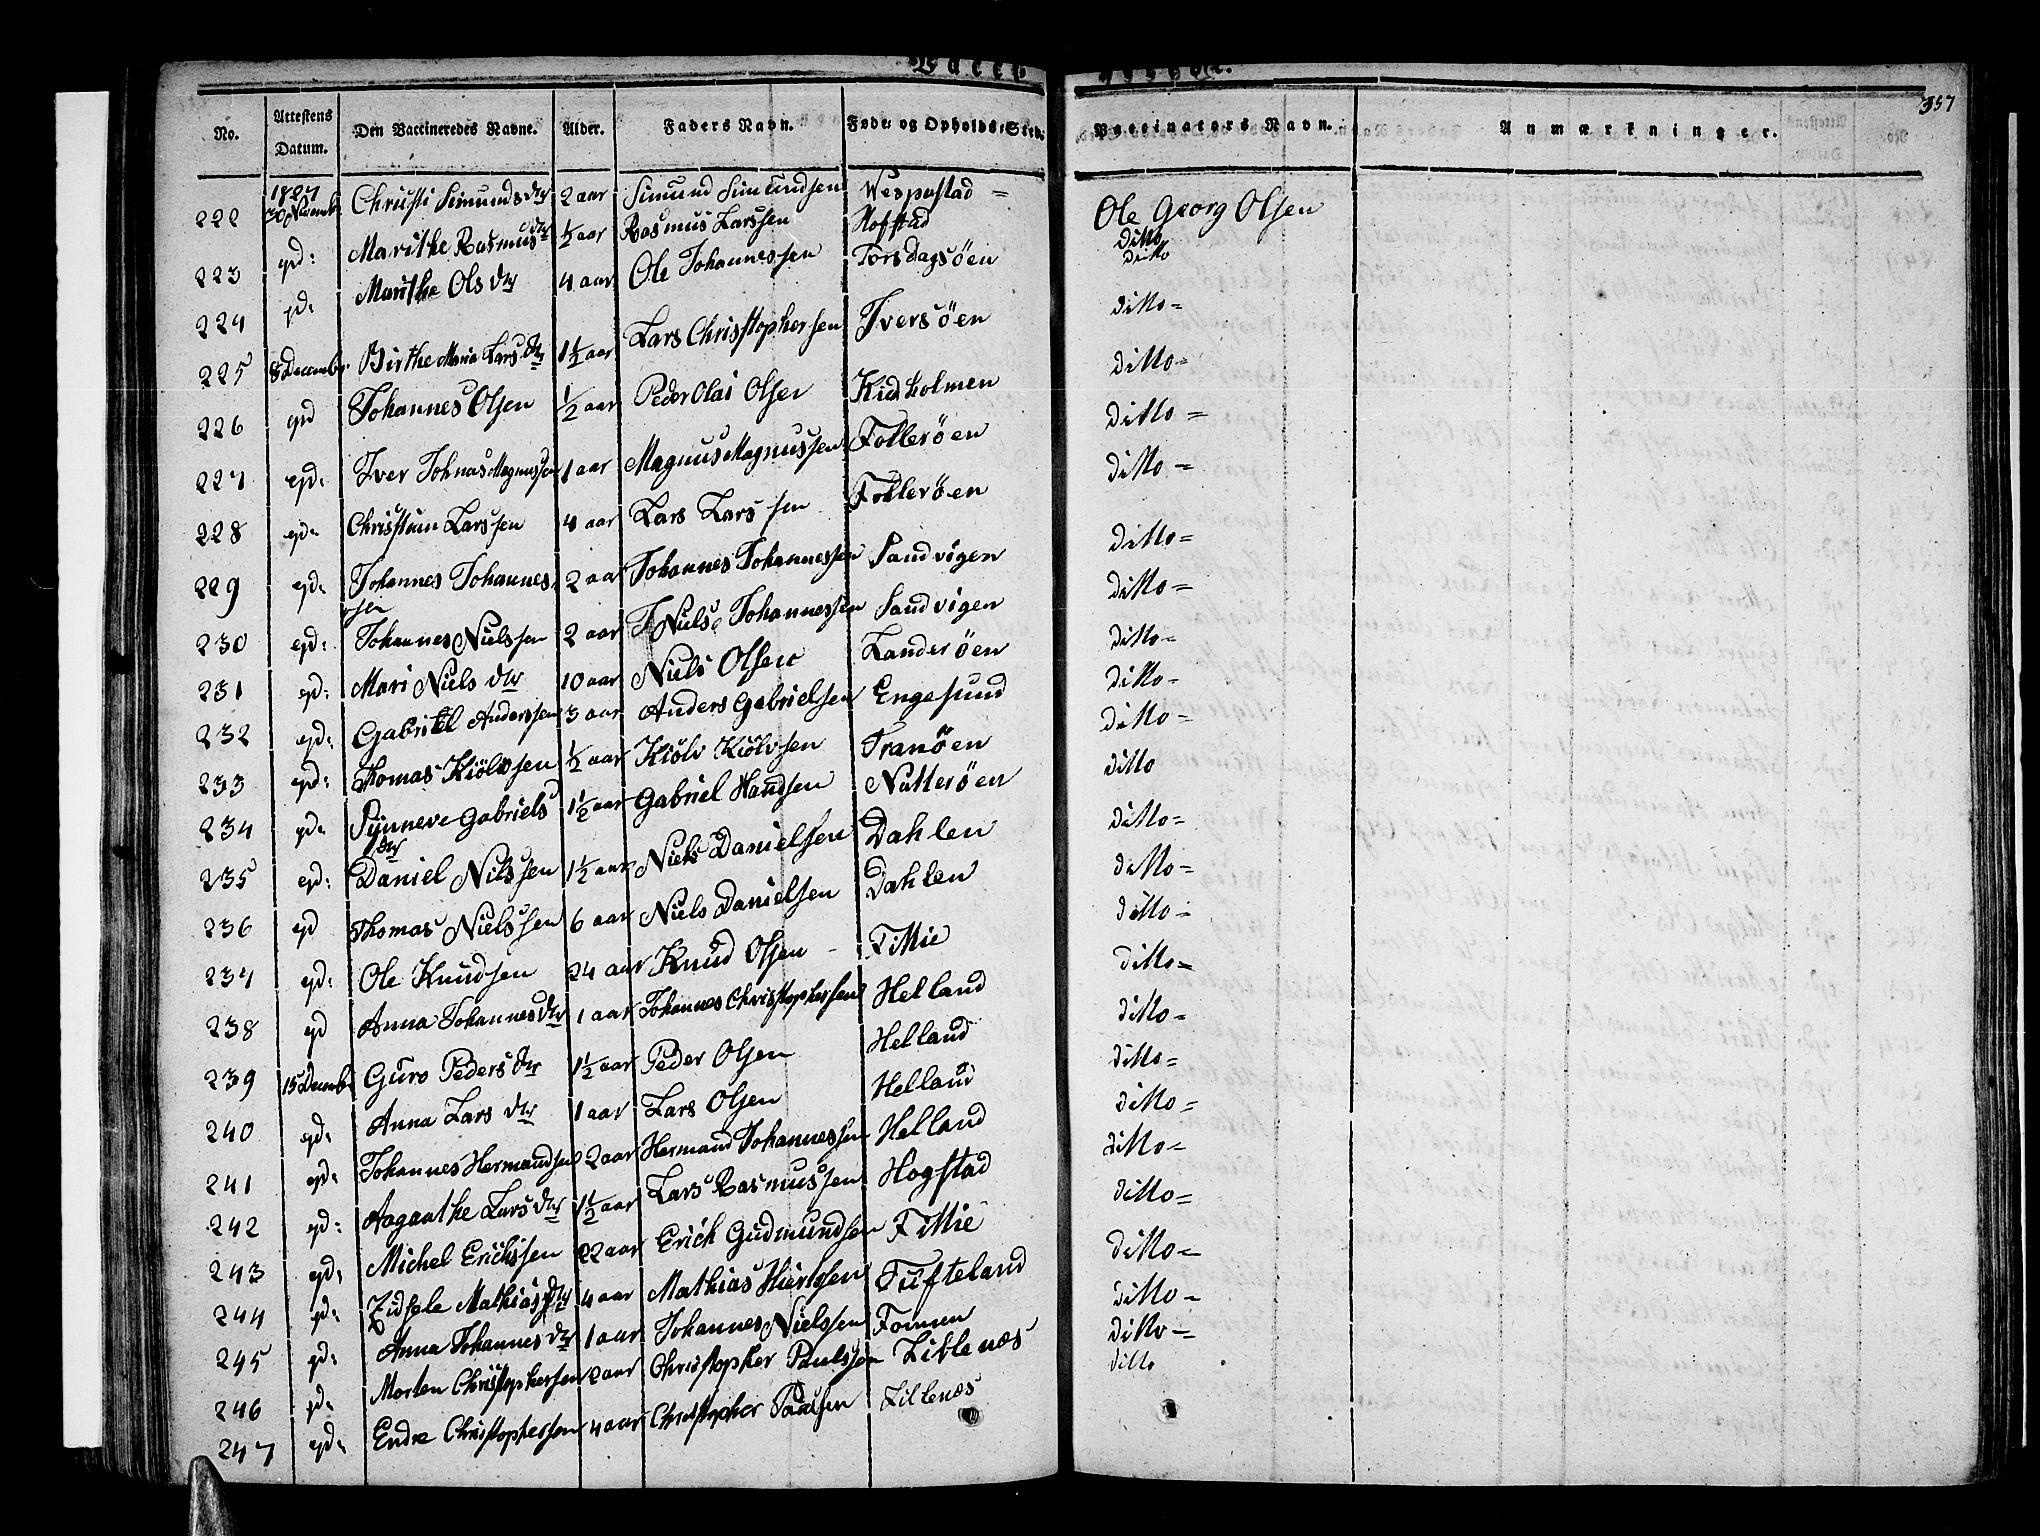 357
No. Attestens Datum. Den Vaccineredes Navne. Alder. Faders Navn. Føde- og Opholds-Sted. Vaccinators Navn. Anmærkninger.
1827
222 30 Novemb: Christi Simunds dtr 2 aar Simund Simundsen Wespestad = Ole Georg Olsen
223 ejd: Marithe Rasmus dtr 1/2 aar Rasmus Larssen Hofstad ditto
224 ejd: Marithe Ols dtr 4 aar Ole Johannessen Torsdagsöen ditto
225 8 Decembr. Birthe Maria Lars dtr 1 1/2 aar Lars Christophersen Iversöen ditto =
226 ejd Johannes Olsen 1/2 aar Peder Olai Olsen Kidholmen ditto =
227 ejd: Iver Johnas Magnussen 1 aar Magnus Magnussen Folleröen ditto =
228 ejd: Christian Larssen 4 aar Lars Larssen Folleröen ditto =
229 ejd: Johannes Johannes sen 2 aar Johannes Johannessen Sandvigen ditto =
230 ejd: Johannes Nielssen 2 aar Niels Johannessen Sandvigen ditto =
231 ejd: Mari Niels dtr 10 aar Niels Olsen Landeröen ditto =
232 ejd: Gabriel Anderssen 3 aar Anders Gabrielsen Engesund ditto =
233 ejd: Thomas Kiölvsen 1/2 aar Kiölv Kiölvsen Tranöen ditto =
234 ejd: Synneve Gabriels dtr 1 1/2 aar Gabriel Handsen Nutteröen ditto
235 ejd: Daniel Nilssen 1 1/2 aar Niels Danielsen Dahlen ditto =
236 ejd Thomas Nielssen 6 aar Niels Danielsen Dahlen ditto =
237 ejd: Ole Knudsen 24 aar Knud Olsen - Fittie ditto =
238 ejd Anna Johannes dtr 1 aar Johannes Christophersen Helland ditto =
239 15 Decemb Guro Peders dtr 1 1/2 aar Peder Olsen Helland ditto =
240 ejd: Anna Lars dtr 1 aar Lars Olsen Helland ditto =
241 ejd: Johannes Hermandsen 2 aar Hermand Johannessen Helland ditto =
242 ejd: Aaganthe Lars dtr 1 1/2 aar Lars Rasmussen Hogstad ditto =
243 ejd: Michel Erichssen 22 aar Erich Gudmundsen Fittie ditto =
244 ejd: Mathias dtr 4 aar Mathias Tufteland ditto =
245 ejd: Anna Johannes dtr 1 aar Johannes Nielssen Fonnen ditto =
246 ejd: Morten Christophersen 2 aar Christopher Paulssen Lillenæs ditto =
247 ejd: Endre Christophersen 4 aar Christopher Paulsen Lillenæs ditto